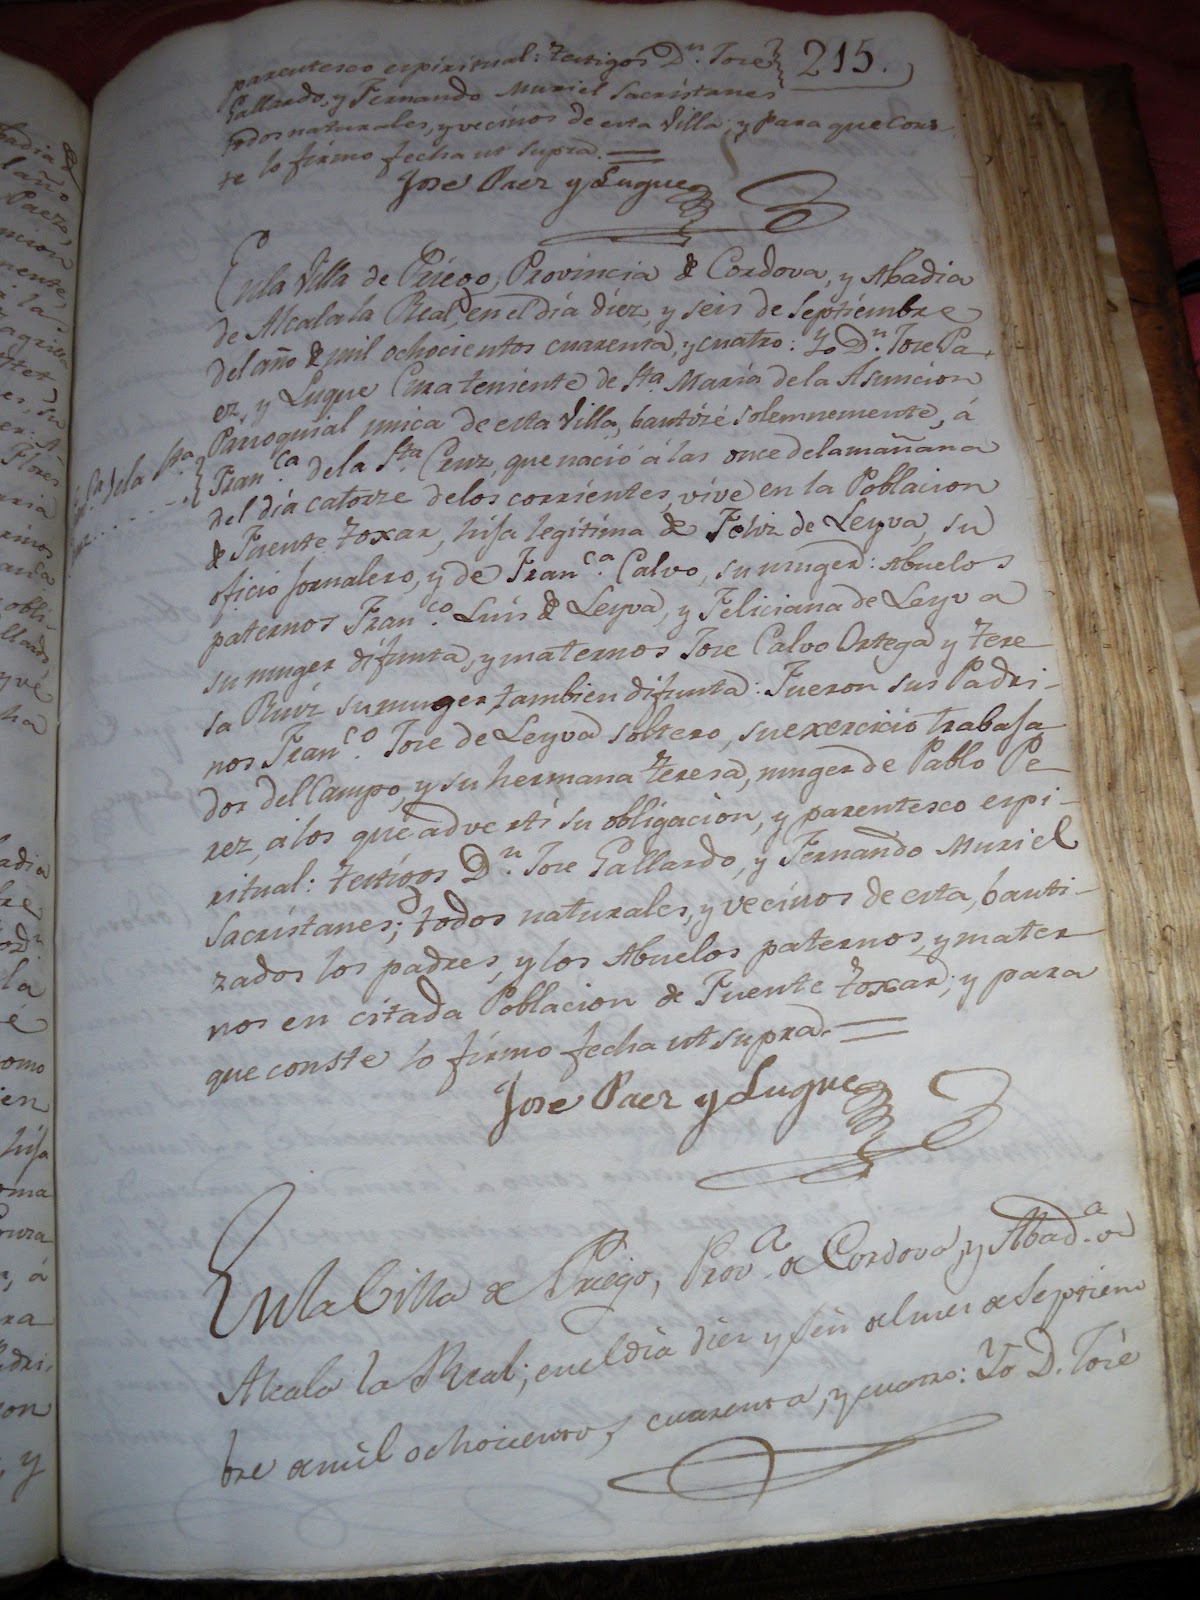 215.
parentesco espiritual: testigos Dn. Jose
Gallardo, y Fernando Muriel Sacristanes
todos naturales, y vecinos de esta Villa; y para que cons-
te lo firmo fecha ut supra. =
Jose Paez y Luque
En la Villa de Priego, Provincia de Cordova, y Abadia
de Alcala la Real, en el dia diez, y seis de Septiembre
del año de mil ochocientos cuarenta, y cuatro: Yo Dn. Jose Pa-
ez, y Luque Cura teniente de Sta. Maria de la Asuncion
Parroquial unica de esta Villa, bautizé solemnemente, á
Franca. de la Sta. Cruz, que nació á las once de la mañana
del dia catorze de los corrientes, vive en la Poblacion
de Fuente Toxar, hija legitima de Feliz de Leyva, su
oficio jornalero, y de Franca. Calvo, su muger: Abuelos
paternos Franco. Luis de Leyva, y Feliciana de Leyva
su muger difunta, y maternos Jose Calvo Ortega y Tere
sa Ruiz su muger, tambien difunta: Fueron sus Padri-
nos Franco. Jose de Leyva soltero, su exercicio trabaja
dor del Campo, y su hermana Teresa, muger de Pablo Pe
rez, á los que advertí su obligacion, y parentesco espi-
ritual: testigos Dn. Jose Gallardo, y Fernando Muriel
Sacristanes; todos naturales, y vecinos de esta, bauti-
zados los padres, y los Abuelos paternos, y mater
nos en citada Poblacion de Fuente Toxar; y para
que conste lo firmo fecha ut supra. =
Jose Paez y Luque
En la Villa de Priego, Prova. de Cordova, y Abada. de
Alcala la Real; en el dia diez y seis del mes de Septiem
bre de mil ochocientos, cuarenta, y cuatro: Yo D. José